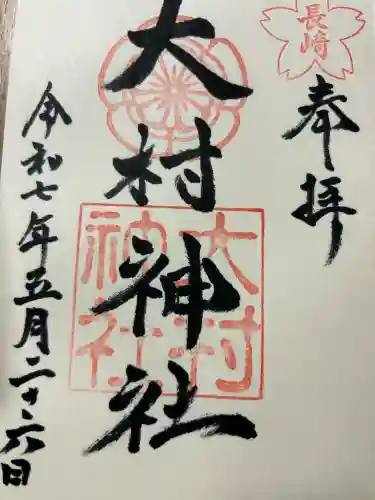 長崎
奉拝
大村神社
大村
神社
令和七年五月二十六日